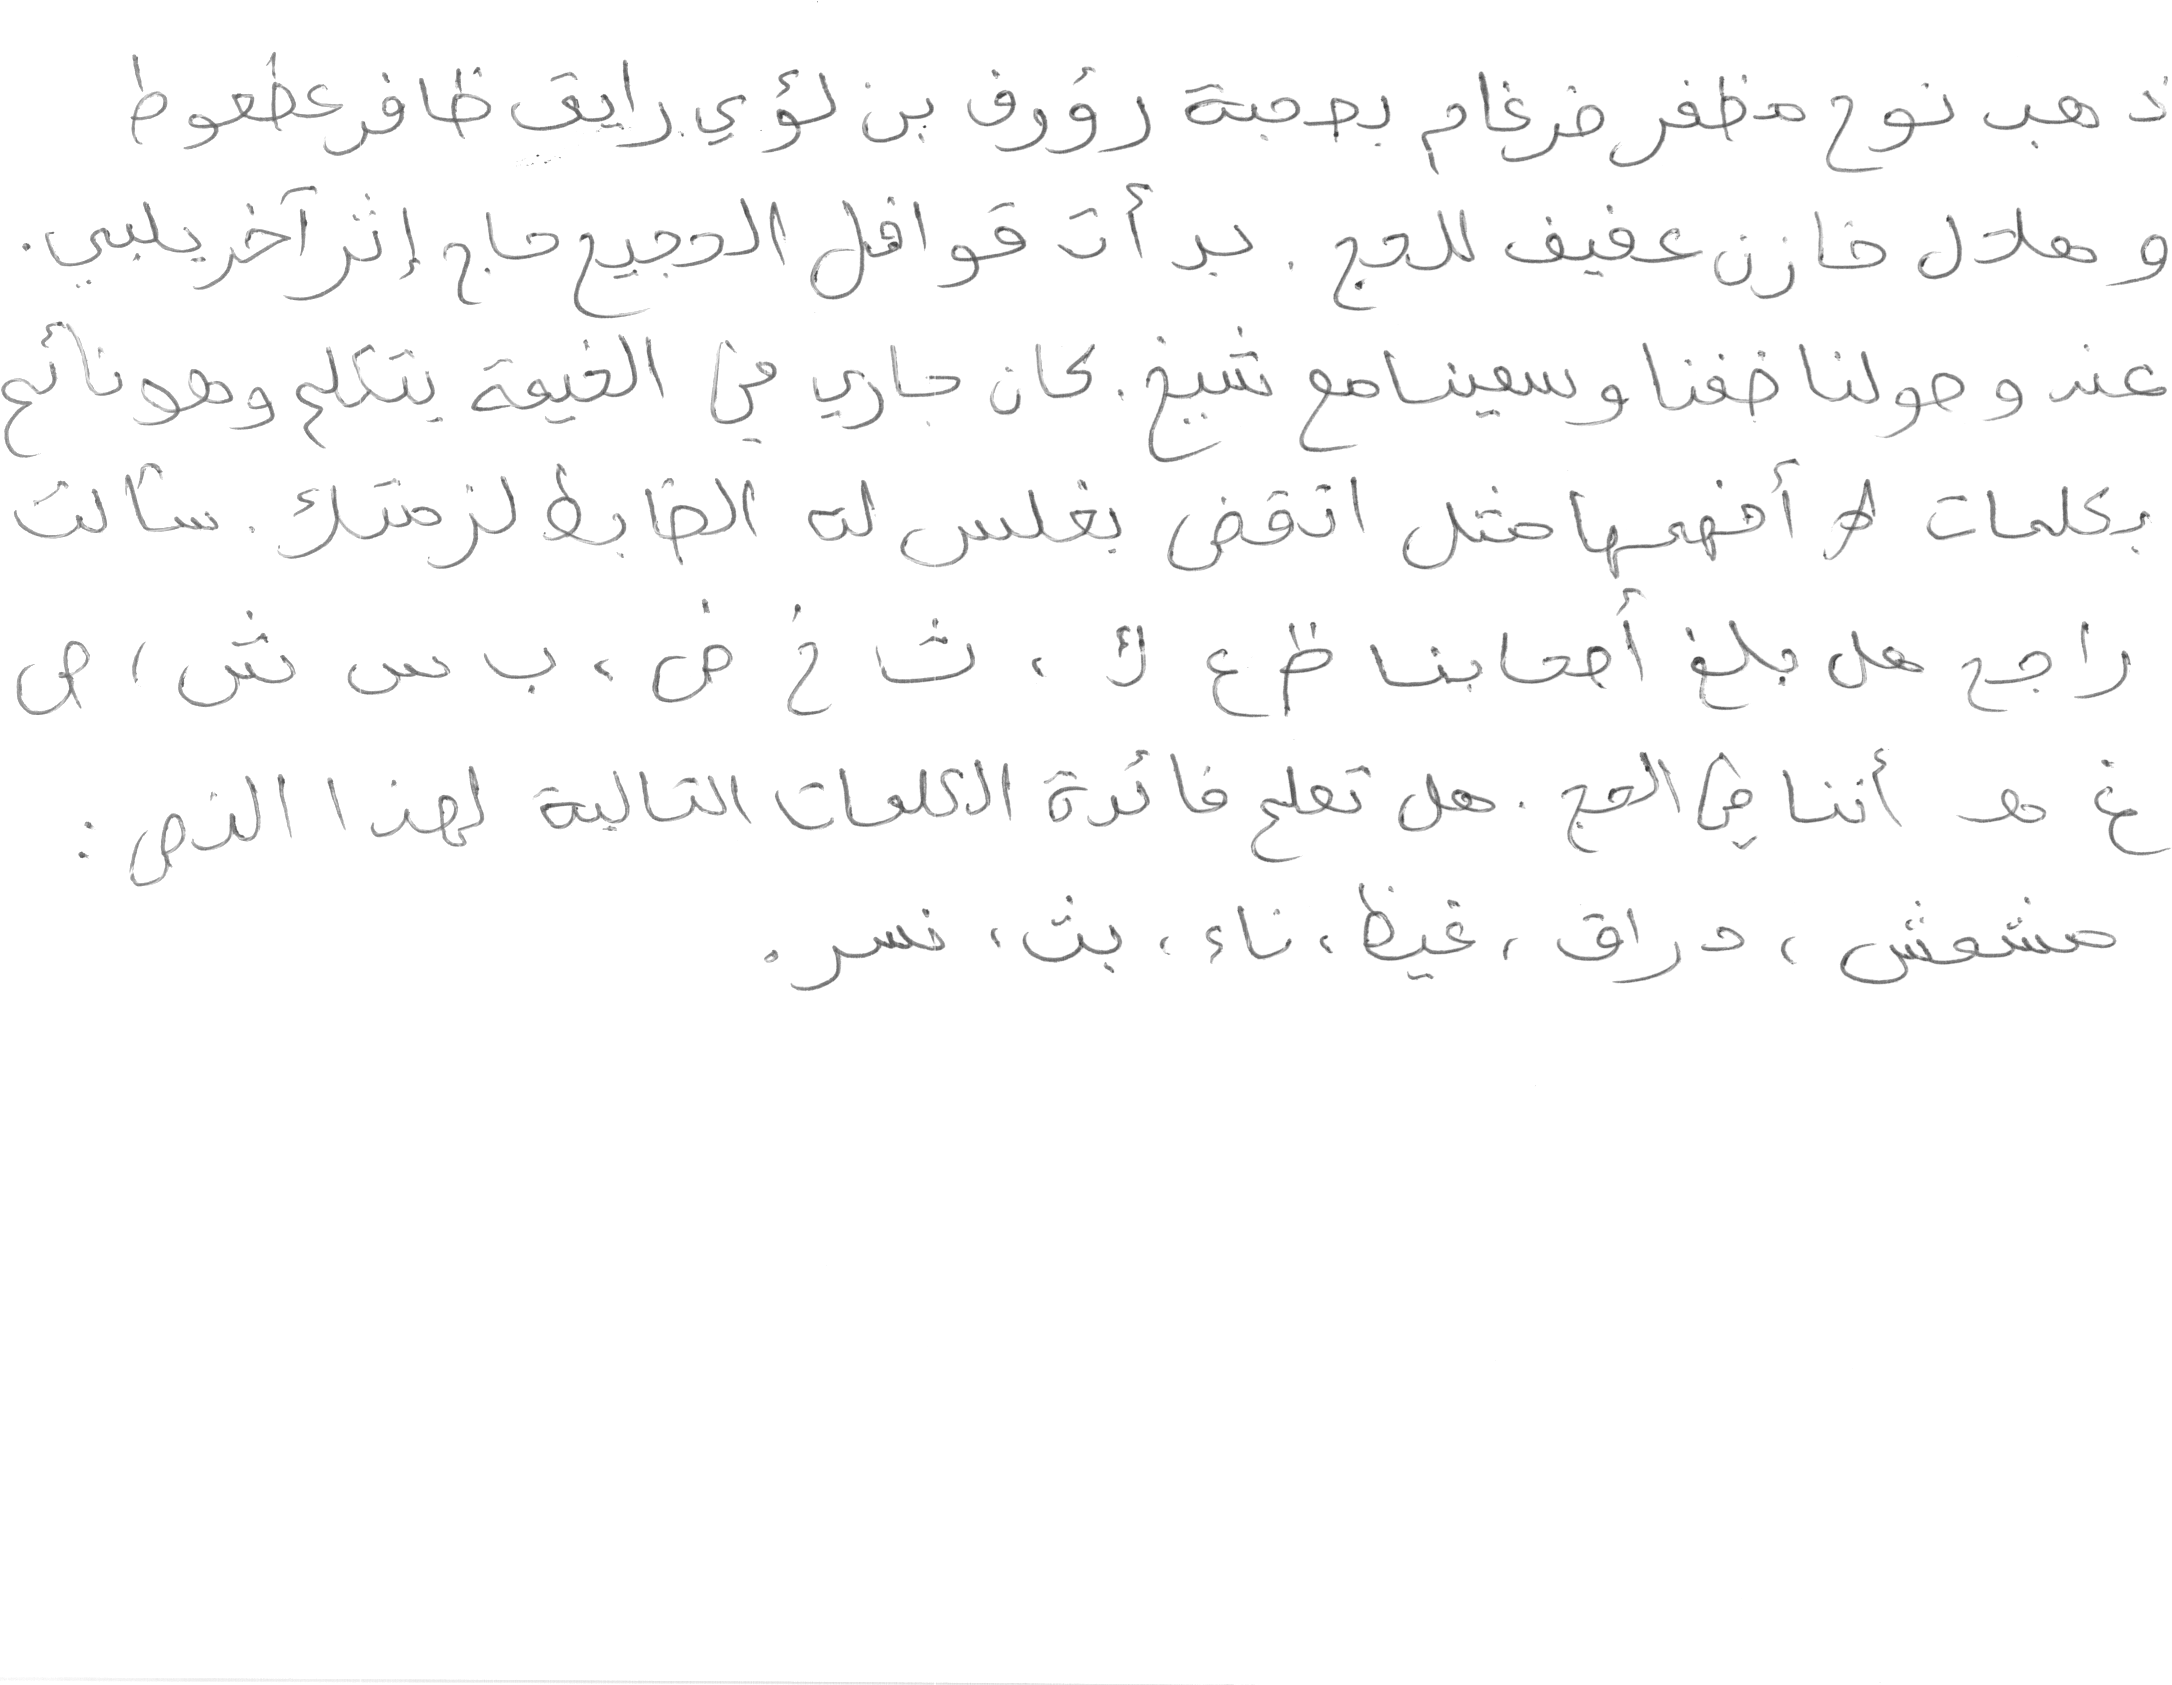 ذهب نوح مظفر ضرغام بصحبة رؤوف بن لؤي رايق ظافر عطعوط
وهلال خازن عفيف للحج . بدأت قوافل الحجيج حاج إثر آخر يلبي .
عند وصولنا خفنا وسعينا مع شيخ . كان جاري في الخيمة يتكلم وهو نائم
بكلمات لا أفهمها مثل انقض بغلس له الضابط لنزحتك . سألت
راجح هل بلغ أصحابنا ظ ع ك ، ث ا خ ض ، ب س ش ، ص
غ هـ أننا في الحج . هل تعلم فائدة الكلمات التالية لهذا النص :
مشمش ، دراق ، غيظ ، ناء ، بث ، نسر .